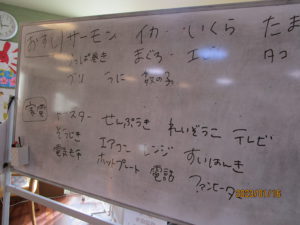 おすし サーモン イカ いくら たま
かっぱ巻き まぐろ エビ タコ
ブリ うに 数の子
家電
トースター せんぷうき れいぞうこ テレビ
そうじき エアコン レンジ すいはんき
電気毛布 ホットプレート 電話 ファンヒーター